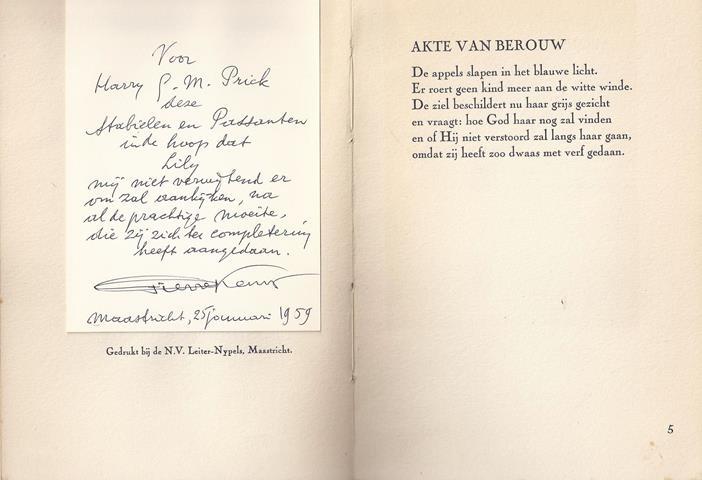 Voor
Harry G. M. Prick
deze
Stabielen en Passanten
in de hoop dat
Lily
mij niet verwijtend er
om zal aankijken, na
al de prachtige moeite,
die zij zich ter completering
heeft aangedaan.
Pierre Kemp
Maastricht, 25 januari 1959
Gedrukt bij de N.V. Leiter-Nypels, Maastricht.
AKTE VAN BEROUW
De appels slapen in het blauwe licht.
Er roert geen kind meer aan de witte winde.
De ziel beschildert nu haar grijs gezicht
en vraagt: hoe God haar nog zal vinden
en of Hij niet verstoord zal langs haar gaan,
omdat zij heeft zoo dwaas met verf gedaan.
5